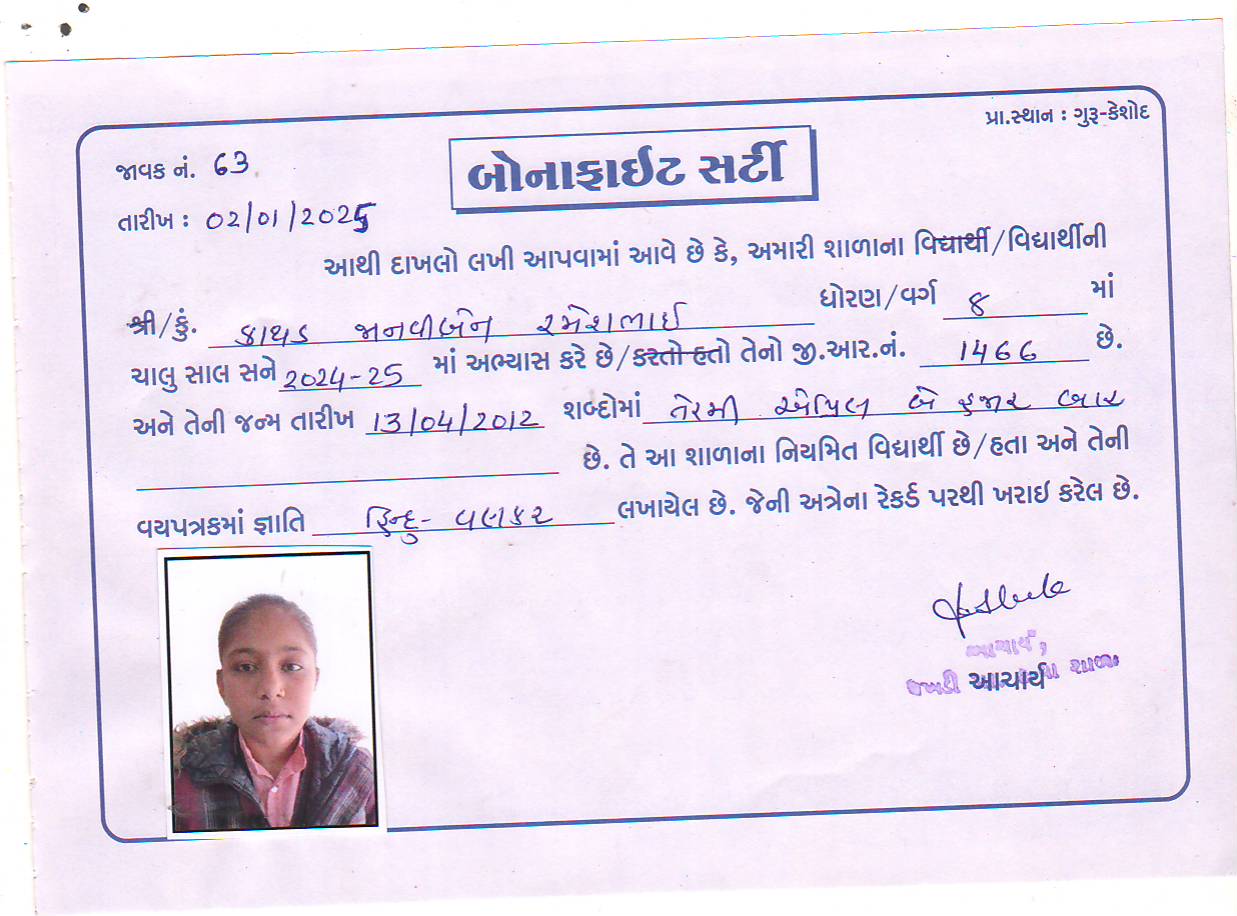 પ્રા.સ્થાન : ગુરૂ-કેશોદ
જાવક નં. 63
બોનાફાઈટ સર્ટી
તારીખ : 02/01/2025
આથી દાખલો લખી આપવામાં આવે છે કે, અમારી શાળાના વિદ્યાર્થી/વિદ્યાર્થીની
શ્રી/કું. કાથડ જાનવીબેન રમેશભાઈ ધોરણ/વર્ગ 8 માં
ચાલુ સાલ સને 2024-25 માં અભ્યાસ કરે છે/કરતો હતો તેનો જી.આર.નં. 1466 છે.
અને તેની જન્મ તારીખ 13/04/2012 શબ્દોમાં તેરમી એપ્રિલ બે હજાર બાર
છે. તે આ શાળાના નિયમિત વિદ્યાર્થી છે/હતા અને તેની
વયપત્રકમાં જ્ઞાતિ હિન્દુ- વણકર લખાયેલ છે. જેની અત્રેના રેકર્ડ પરથી ખરાઇ કરેલ છે.
આચાર્ય,
આચાર્ય શાળા